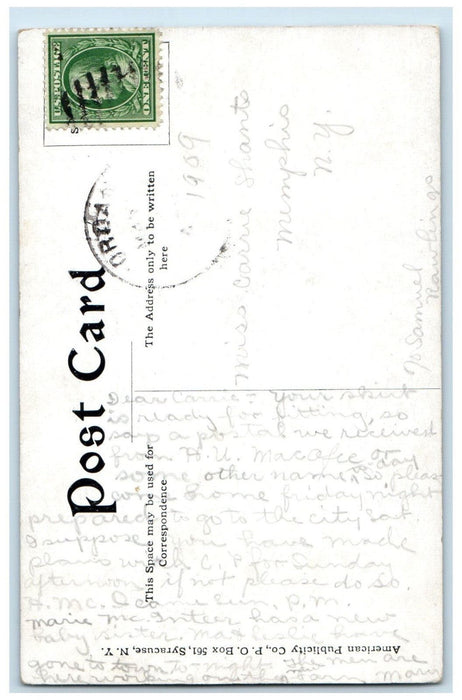 U.S. POSTAGE
ONE CENT
1909
Post Card
The Address only to be written
here
This Space may be used for
Correspondence
American Publicity Co., P. O. Box 561, Syracuse, N. Y.
Miss Carrie Shants
Memphis
N.Y.
℅ Samuel
Rawlings
Dear Carrie:- Your skirt
is ready for fitting, so
says a postal we received
from H. U. Macafee or
some other name to day
So please
come home friday night
prepared to go to the city Sat
I suppose you have made
plans with C. P. for Sunday
afternoon, if not please do so.
H. Mc. I come Sun, P.M.
Marie McIntee has a new
baby sister. Ma &
gone to town to-night. The men are
here Mary